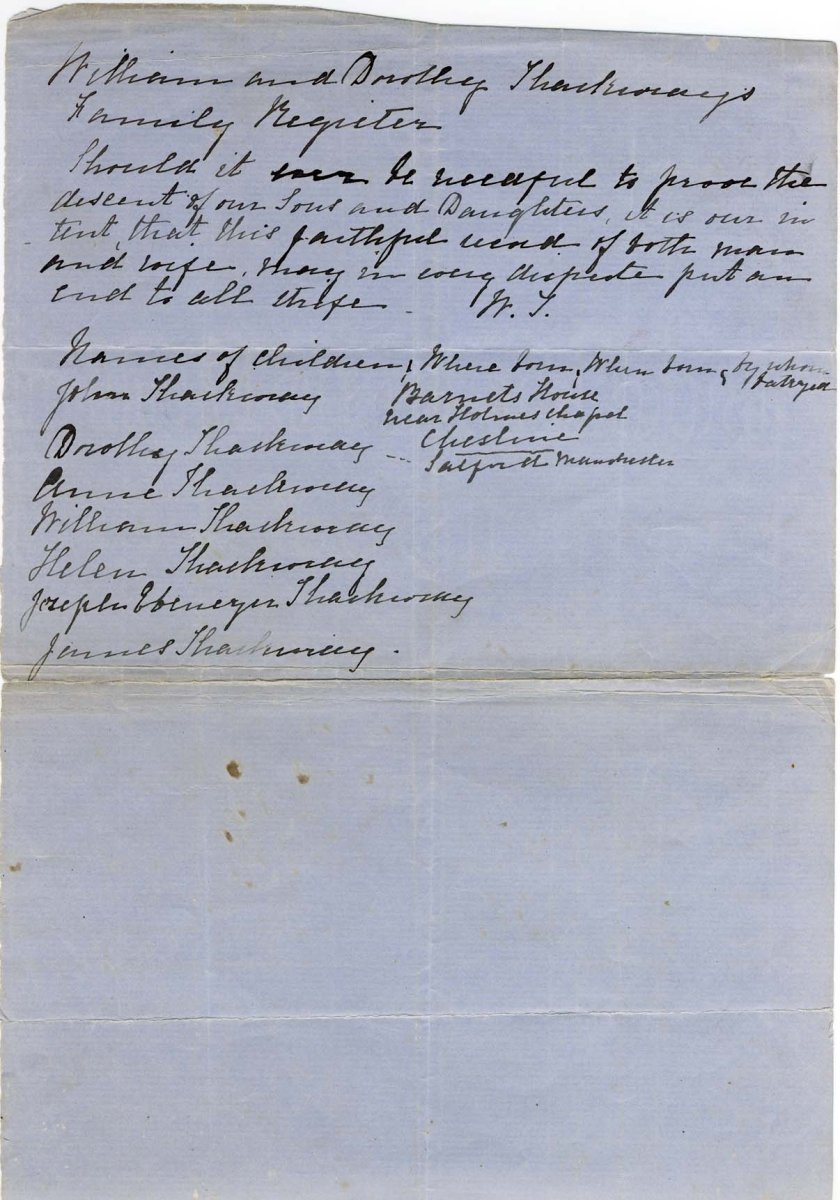 William and Dorothy Thackway's
Family Register
Should it ever be needful to prove the
descent of our Sons and Daughters, it is our in
tent, that this faithful record of both man
and wife, may in every dispute put an
end to all strife W. T.
Names of children, Where born, When born, by whom
baptized
John Thackway Barnets House
near Holmes chapel
Cheshire
Dorothy Thackway --- Salford Manchester
Anne Thackway
William Thackway
Helen Thackway
Joseph Ebenezer Thackway
James Thackway.